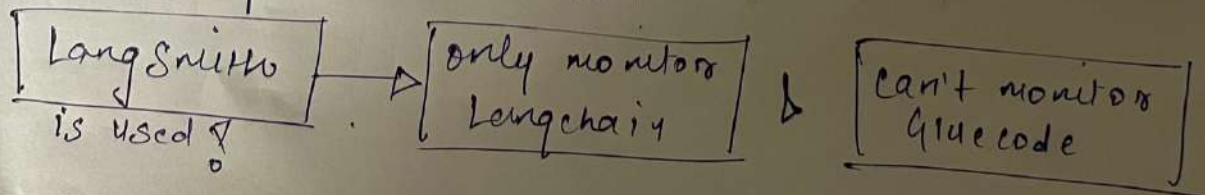 LangSmith
is used?
only monitor
Langchain
can't monitor
Gluecode